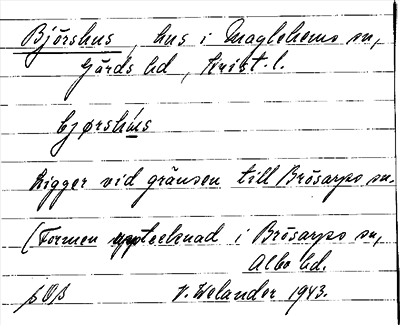 Björshus, hus i Maglehems sn,
Gärds hd, Krist. l.
bjørshus
Ligger vid gränsen till Brösarps sn.
(Formen upptecknad i Brösarps sn,
Albo hd.
V. Welander 1943.